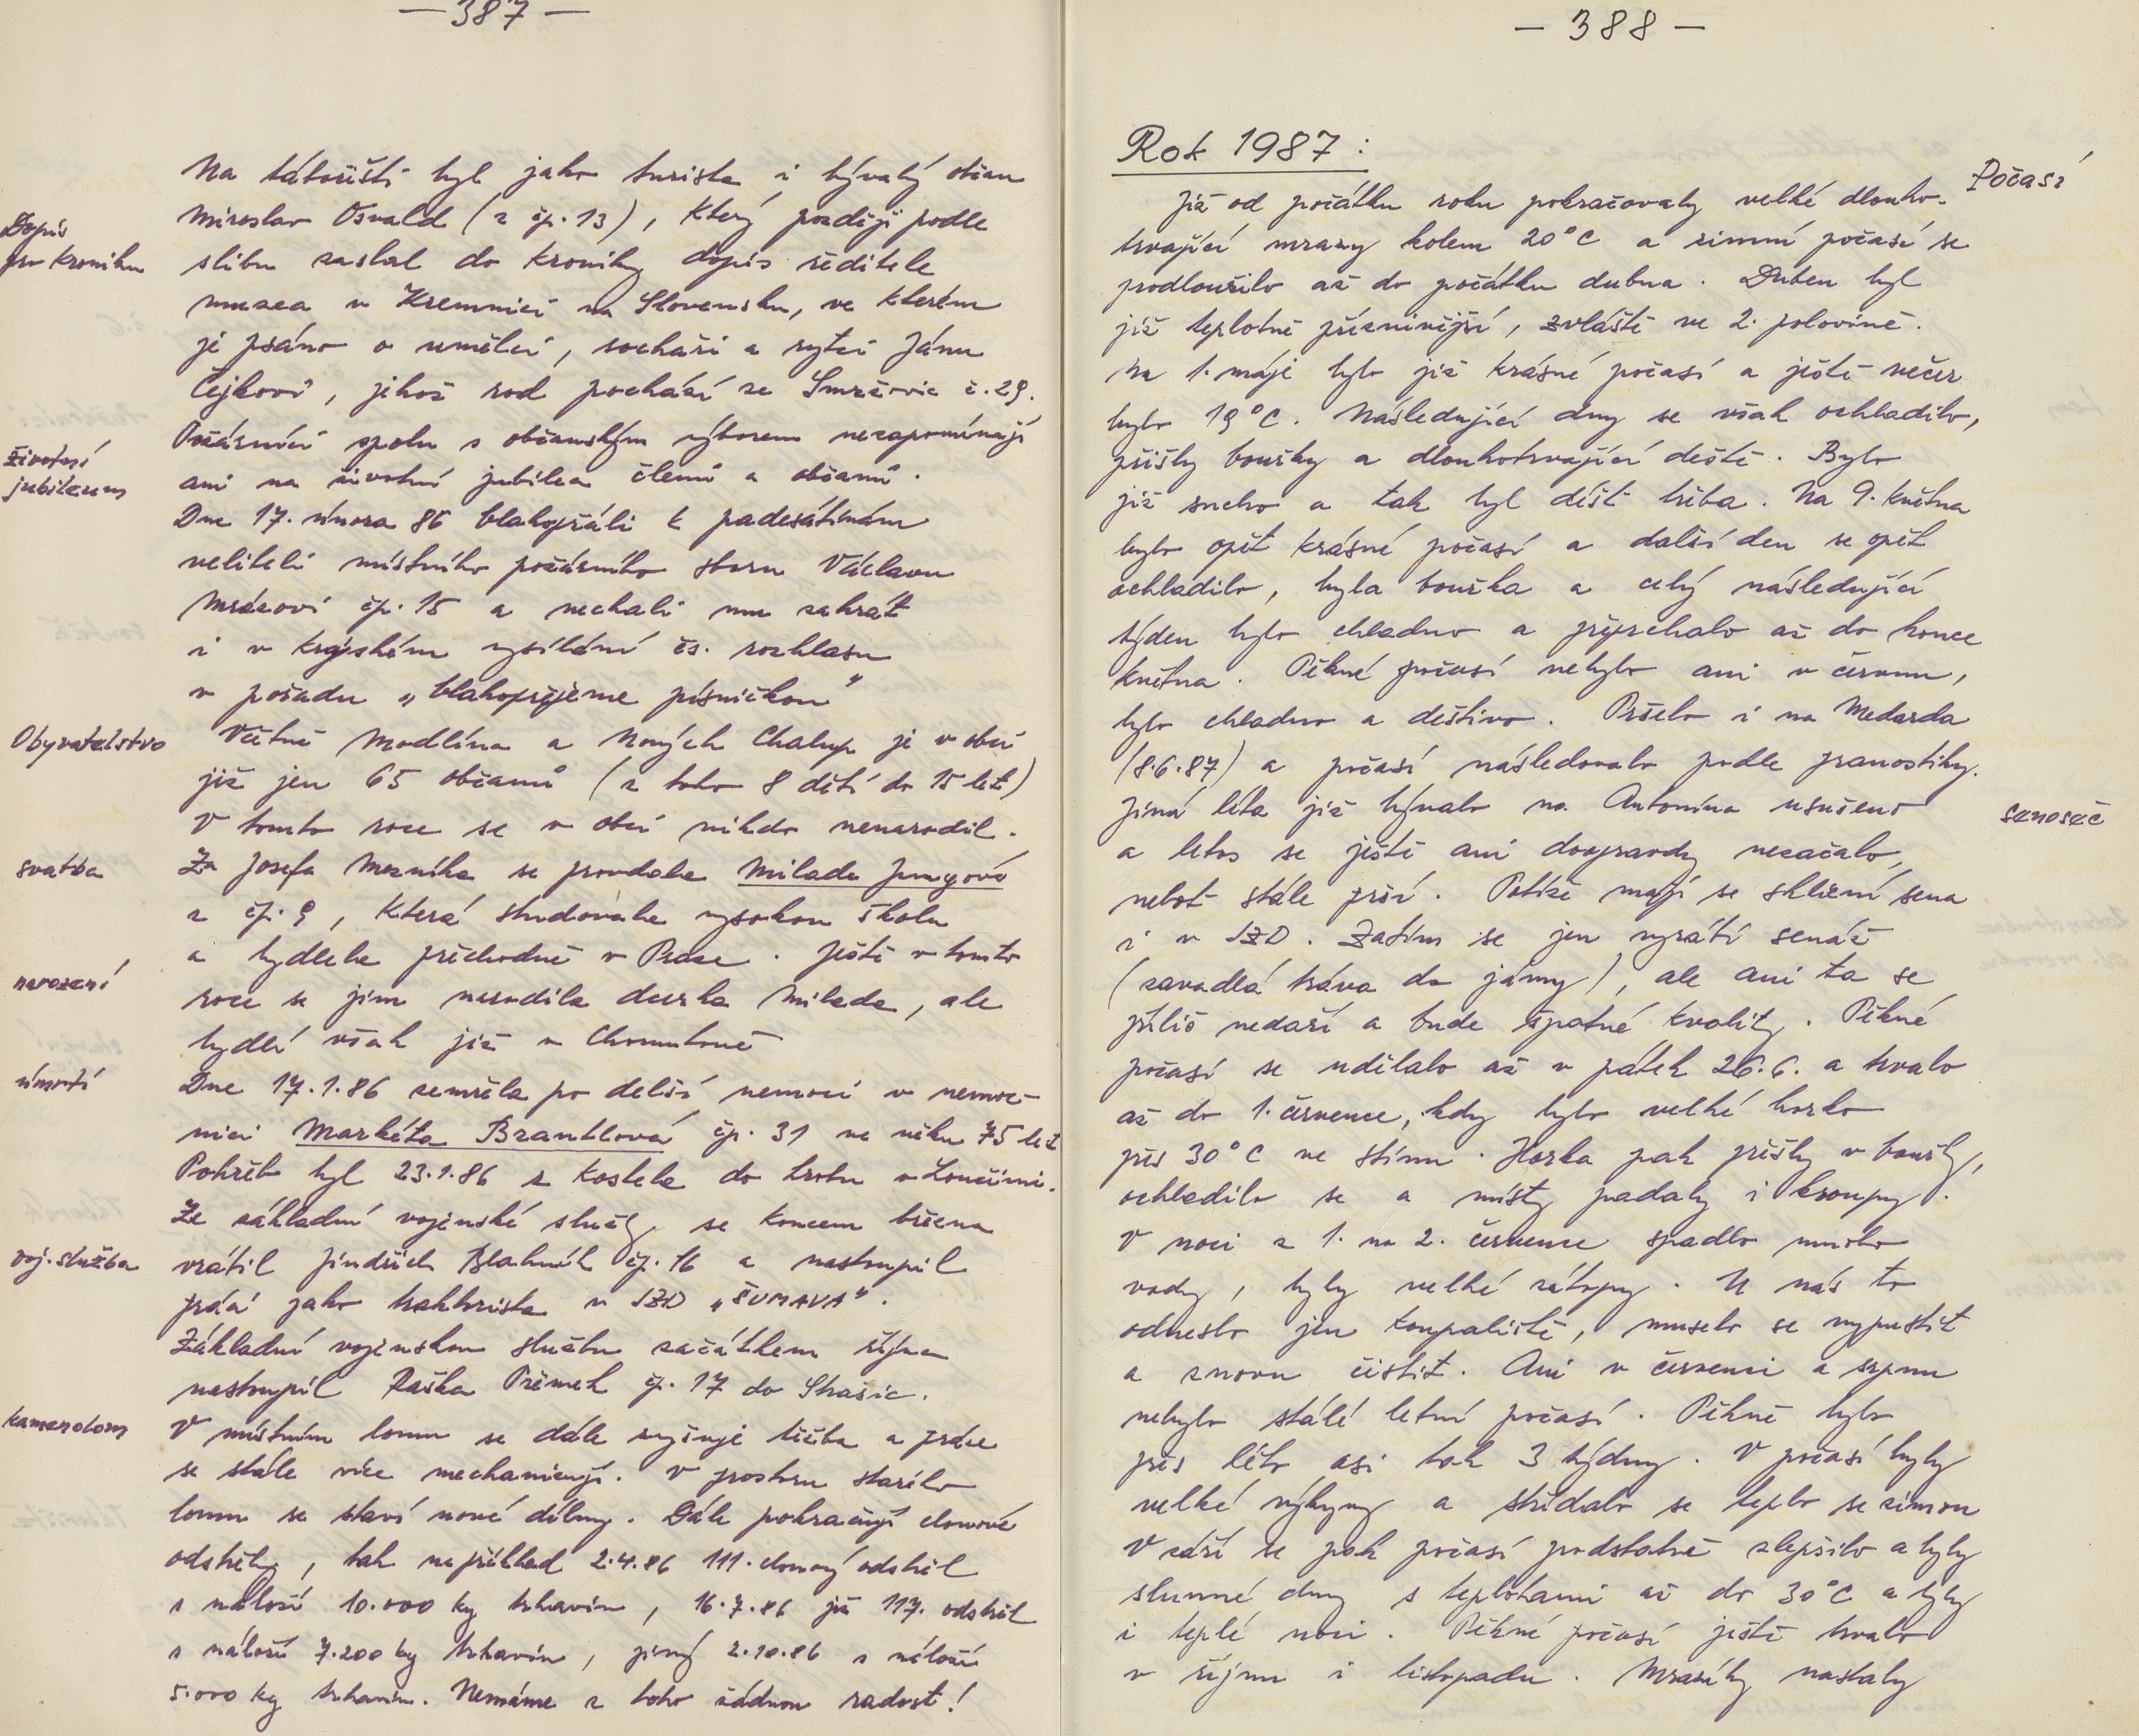 — 387 —
Na tábořišti byl jako turista i bývalý občan
Miroslav Osvald (z čp. 13), který později podle
Dopis
pro kroniku
slibu zaslal do kroniky dopis ředitele
muzea v Kremnici na Slovensku, ve kterém
je psáno o umělci, sochaři a rytci Jánu
Čejkovi, jehož rod pochází ze Smržovic č. 29.
Požárníci spolu s občanským výborem nezapomínají
životní
jubileum
ani na životní jubilea členů a občanů.
Dne 17. února 86 blahopřáli k padesátinám
veliteli místního požárního sboru Václavu
Mrázovi čp. 15 a nechali mu zahrát
i v krajském vysílání čs. rozhlasu
v pořadu „blahopřejeme písničkou"
Obyvatelstvo
Včetně Modlína a Nových Chalup je v obci
již jen 65 občanů (z toho 8 dětí do 15 let)
V tomto roce se v obci nikdo nenarodil.
svatba
Za Josefa Mezníka se provdala Milada Jungová
z čp. 9, která studovala vysokou školu
a bydlela přechodně v Praze. Ještě v tomto
narození
roce se jim narodila dcerka Milada, ale
bydlí však již v Chomutově
úmrtí
Dne 17.1.86 zemřela po delší nemoci v nemoc-
nici Markéta Brantlová čp. 31 ve věku 75 let
Pohřeb byl 23.1.86 z kostela do hrobu v Loučimi.
Ze základní vojenské služby se koncem března
voj. služba
vrátil Jindřich Blahník čp. 16 a nastoupil
práci jako traktorista v JZD „ŠUMAVA".
Základní vojenskou službu začátkem října
nastoupil Raška Přemek čp. 17 do Strašic.
kamenolom
V místním lomu se dále zvyšuje těžba a práce
se stále více mechanizují. V prostoru starého
lomu se staví nové dílny. Dále pokračují clonové
odstřely, tak například 2.4.86 111. clonový odstřel
s náloží 10.000 kg trhavin, 16.7.86 již 117. odstřel
s náloží 7.200 kg trhavin, jiný 2.10.86 s náloží
5.000 kg trhavin. Nemáme z toho žádnou radost!
— 388 —
Rok 1987 :
Počasí
Již od počátku roku pokračovaly velké dlouho-
trvající mrazy kolem 20°C a zimní počasí se
prodloužilo až do počátku dubna. Duben byl
již teplotně příznivější, zvláště ve 2. polovině.
Na 1. máje bylo již krásné počasí a ještě večer
bylo 19°C. Následující dny se však ochladilo,
přišly bouřky a dlouhotrvající deště. Bylo
již sucho a tak byl déšť třeba. Na 9. května
bylo opět krásné počasí a další den se opět
ochladilo, byla bouřka a celý následující
týden bylo chladno a propršelo až do konce
května. Pěkné počasí nebylo ani v červnu,
bylo chladno a deštivo. Pršelo i na Medarda
(8.6.87) a počasí následovalo podle pranostiky.
senoseč
Jiná léta již bývalo na Antonína usušeno
a letos se ještě ani doopravdy nezačalo,
neboť stále prší. Potíže mají se sklizní sena
i v JZD. Zatím se jen vyrábí senáž
(zavadlá tráva do jámy), ale ani ta se
příliš nedaří a bude špatné kvality. Pěkné
počasí se udělalo až v pátek 26.6. a trvalo
až do 1. července, kdy bylo velké horko
přes 30°C ve stínu. Horka pak přešly v bouřky,
ochladilo se a místy padaly i kroupy.
V noci z 1. na 2. července spadlo mnoho
vody, byly velké zátopy. U nás to
odneslo jen koupaliště, muselo se vypustit
a znovu čistit. Ani v červenci a srpnu
nebylo stálé letní počasí. Pěkně bylo
přes léto asi tak 3 týdny. V počasí byly
velké výkyvy a střídalo se teplo se zimou
V září se pak počasí podstatně zlepšilo a byly
slunné dny s teplotami až do 30°C a byly
i teplé noci. Pěkné počasí ještě trvalo
v říjnu i listopadu. Mrazíky nastaly